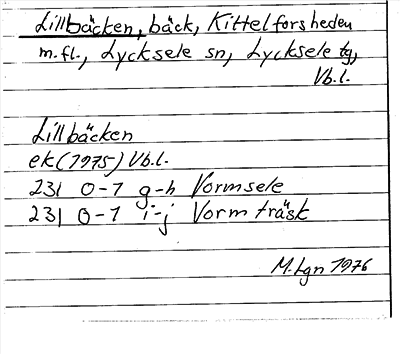 Lillbäcken, bäck, Kittelforsheden
m.fl., Lycksele sn, Lycksele tg,
Vb.l.
Lillbäcken
ek (1975) Vb.l.
23I 0-1 g-h Vormsele
23I 0-1 i-j Vormträsk
M. Lgn 1976